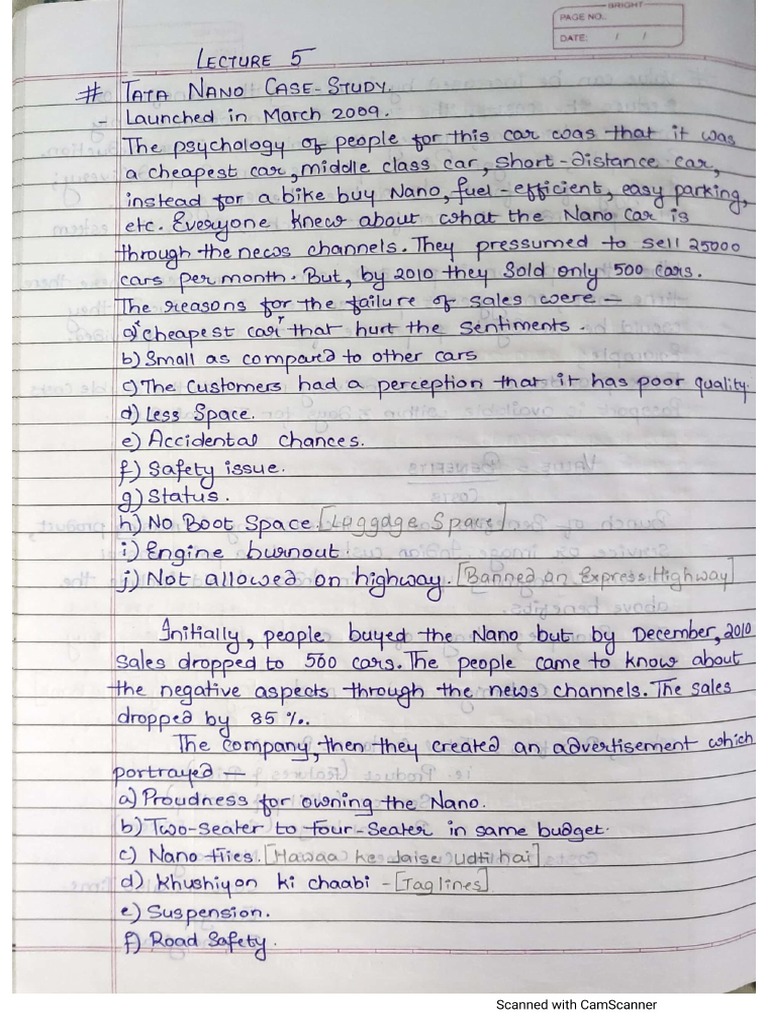 BRIGHT
PAGE NO.
DATE: / /
LECTURE 5
# TATA NANO CASE-STUDY.
- Launched in March 2009.
The psychology of people for this car was that it was
a cheapest car, middle class car, short-distance car,
instead for a bike buy Nano, fuel-efficient, easy parking,
etc. Everyone knew about what the Nano car is
through the news channels. They pressumed to sell 25000
cars per month. But, by 2010 they sold only 500 cars.
The reasons for the failure of sales were –
a) "cheapest car" that hurt the sentiments.
b) Small as compared to other cars
c) The customers had a perception that it has poor quality.
d) Less Space.
e) Accidental chances.
f) Safety issue.
g) Status.
h) No Boot Space. [Laggage Space]
i) Engine burnout.
j) Not allowed on highway. [Banned on Express Highway]
Initially, people buyed the Nano but by December, 2010
sales dropped to 500 cars. The people came to know about
the negative aspects through the news channels. The sales
dropped by 85 %.
The company, then they created an advertisement which
portrayed –
a) Proudness for owning the Nano.
b) Two-seater to four-seater in same budget.
c) Nano flies. [Hawaa ke Jaise udti hai]
d) Khushiyon ki chaabi - [Tag lines]
e) Suspension.
f) Road Safety.
Scanned with CamScanner